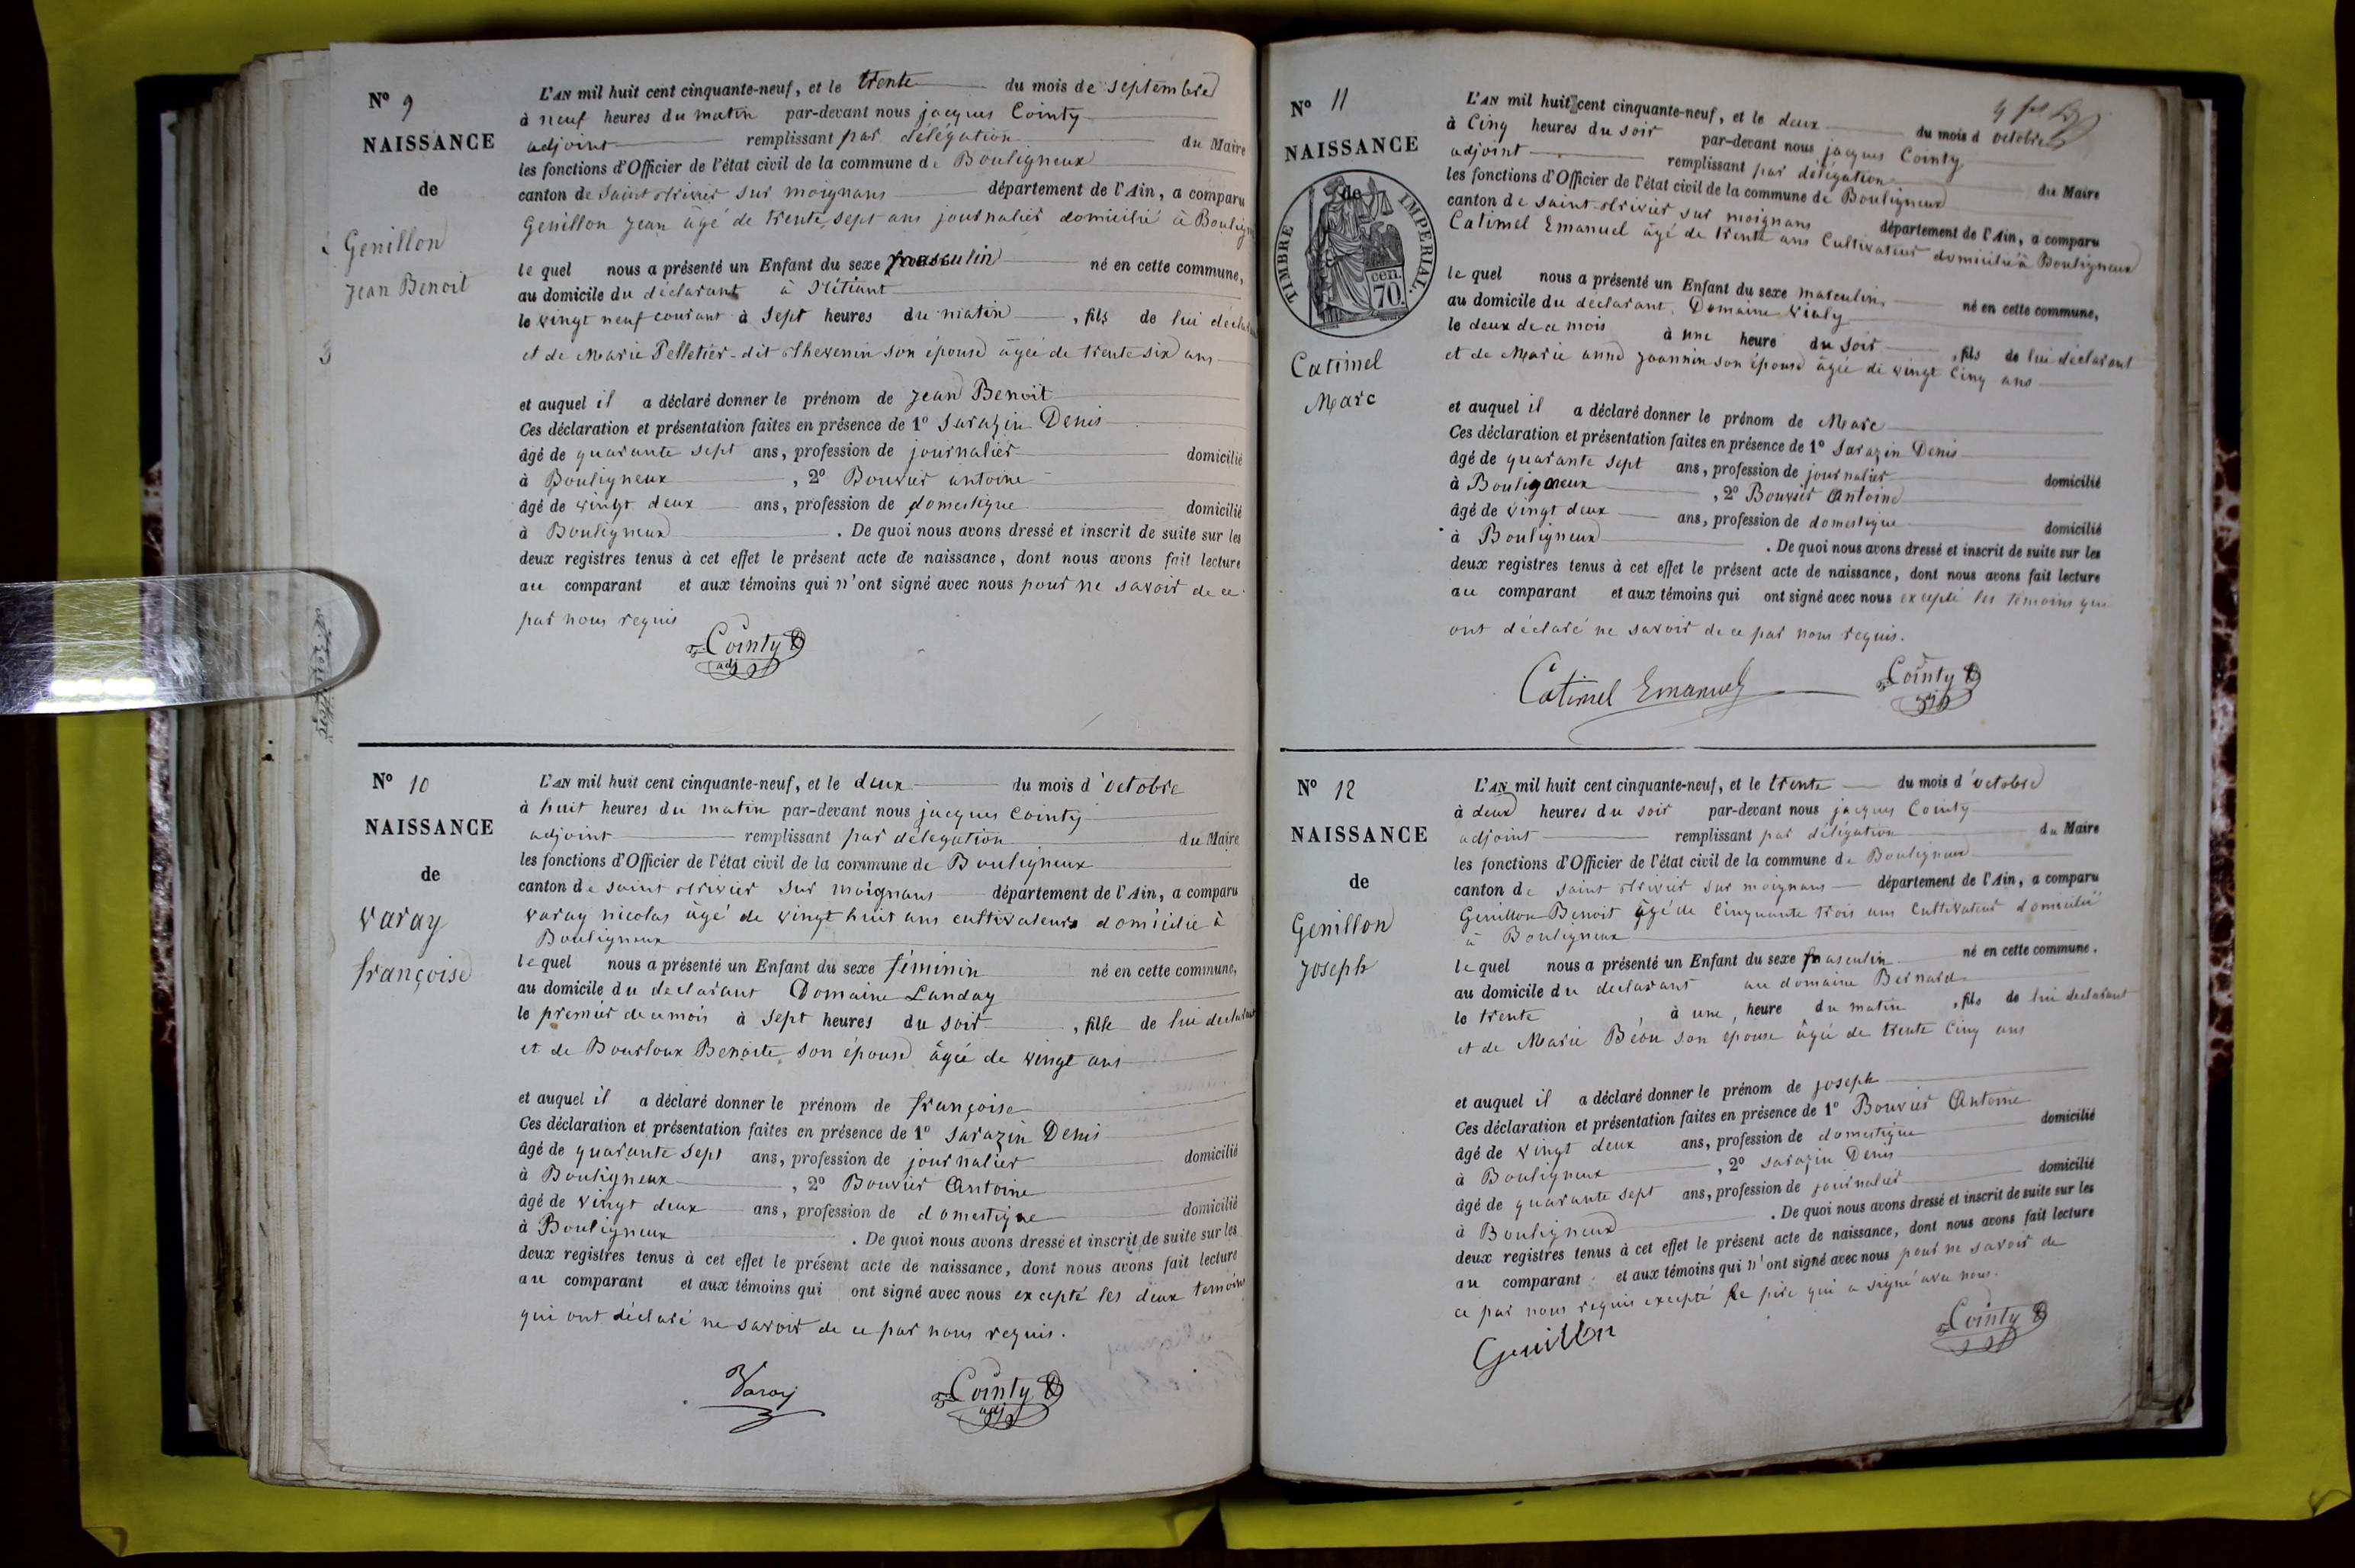 N° 9
NAISSANCE
de
Genillon
Jean Benoit
3
L'AN mil huit cent cinquante-neuf, et le trente du mois de septembre
à neuf heures du matin par-devant nous jacques Cointy
adjoint remplissant par délégation du Maire
les fonctions d'Officier de l'état civil de la commune de Bouligneux
canton de Saint trivier sur moignans département de l'Ain, a comparu
Genillon Jean âgé de trente sept ans journalier domicilié à
le quel nous a présenté un Enfant du sexe masculin né en cette commune,
au domicile du déclarant à
le vingt neuf courant à Sept heures du matin, fils de lui
et de Marie Pelletier-dit thevenin son épouse âgée de trente six ans
et auquel il a déclaré donner le prénom de Jean Benoit
Ces déclaration et présentation faites en présence de 1° Sarazin Denis
âgé de quarante sept ans, profession de journalier domicilié
à Bouligneux, 2° Bouvier antoine
âgé de vingt deux ans, profession de domestique domicilié
à Bouligneux. De quoi nous avons dressé et inscrit de suite sur les
deux registres tenus à cet effet le présent acte de naissance, dont nous avons fait lecture
au comparant et aux témoins qui n'ont signé avec nous pour ne savoir de ce
par nous requis
Cointy
adj
N° 10
NAISSANCE
de
Varay
françoise
L'AN mil huit cent cinquante-neuf, et le deux du mois d'octobre
à huit heures du matin par-devant nous jacques Cointy
adjoint remplissant par délégation du Maire
les fonctions d'Officier de l'état civil de la commune de Bouligneux
canton de saint trivier sur moignans département de l'Ain, a comparu
Varay nicolas âgé de vingt huit ans cultivateur domicilié à
Bouligneux
lequel nous a présenté un Enfant du sexe féminin né en cette commune,
au domicile du declarant Domaine Landay
le premier de ce mois à sept heures du soir, fille de lui
et de Bourloux Benoite son épouse âgée de vingt ans
et auquel il a déclaré donner le prénom de françoise
Ces déclaration et présentation faites en présence de 1° Sarazin Denis
âgé de quarante sept ans, profession de journalier domicilié
à Bouligneux, 2° Bouvier Antoine
âgé de vingt deux ans, profession de domestique domicilié
à Bouligneux. De quoi nous avons dressé et inscrit de suite sur les
deux registres tenus à cet effet le présent acte de naissance, dont nous avons fait lecture
au comparant et aux témoins qui ont signé avec nous excepté les deux temoins
qui ont déclaré ne savoir de ce par nous requis.
Varay
Cointy
adj
N° 11
NAISSANCE
de
TIMBRE IMPERIAL.
70. cen.
Catimel
Marc
L'AN mil huit cent cinquante-neuf, et le deux du mois d octobre
à Cinq heures du soir par-devant nous jacques Cointy
adjoint remplissant par délégation du Maire
les fonctions d'Officier de l'état civil de la commune de Bouligneux
canton de saint-trivier sur moignans département de l'Ain, a comparu
Catimel Emanuel âgé de trente ans Cultivateur domicilié à Bouligneux
le quel nous a présenté un Enfant du sexe masculin né en cette commune,
au domicile du déclarant, Domaine Vialy
le deux de ce mois à une heure du soir, fils de lui déclarant
et de Marie anne Joannin son épouse âgée de vingt Cinq ans
et auquel il a déclaré donner le prénom de Marc
Ces déclaration et présentation faites en présence de 1° Sarazin Denis
âgé de quarante sept ans, profession de journalier domicilié
à Bouligneux, 2° Bouvier Antoine
âgé de vingt deux ans, profession de domestique domicilié
à Bouligneux. De quoi nous avons dressé et inscrit de suite sur les
deux registres tenus à cet effet le présent acte de naissance, dont nous avons fait lecture
au comparant et aux témoins qui ont signé avec nous excepté les témoins qui
ont déclaré ne savoir de ce par nous requis.
Catimel Emanuel
Cointy
adj
N° 12
NAISSANCE
de
Genillon
Joseph
L'AN mil huit cent cinquante-neuf, et le trente du mois d'octobre
à deux heures du soir par-devant nous jacques Cointy
adjoint remplissant par délégation du Maire
les fonctions d'Officier de l'état civil de la commune de Bouligneux
canton de saint trivier sur moignans département de l'Ain, a comparu
Genillon Benoit âgé de Cinquante trois ans Cultivateur domicilié
à Bouligneux
le quel nous a présenté un Enfant du sexe masculin né en cette commune,
au domicile du declarant au domaine Bernard
le trente, à une, heure du matin, fils de lui declarant
et de Marie Béou son epouse âgée de trente Cinq ans
et auquel il a déclaré donner le prénom de joseph
Ces déclaration et présentation faites en présence de 1° Bouvier Antoine
âgé de vingt deux ans, profession de domestique domicilié
à Bouligneux, 2° Sarazin Denis
âgé de quarante sept ans, profession de journalier domicilié
à Bouligneux. De quoi nous avons dressé et inscrit de suite sur les
deux registres tenus à cet effet le présent acte de naissance, dont nous avons fait lecture
au comparant et aux témoins qui n'ont signé avec nous pour ne savoir de
ce par nous requis excepté le père qui a signé avec nous.
Genillon
Cointy